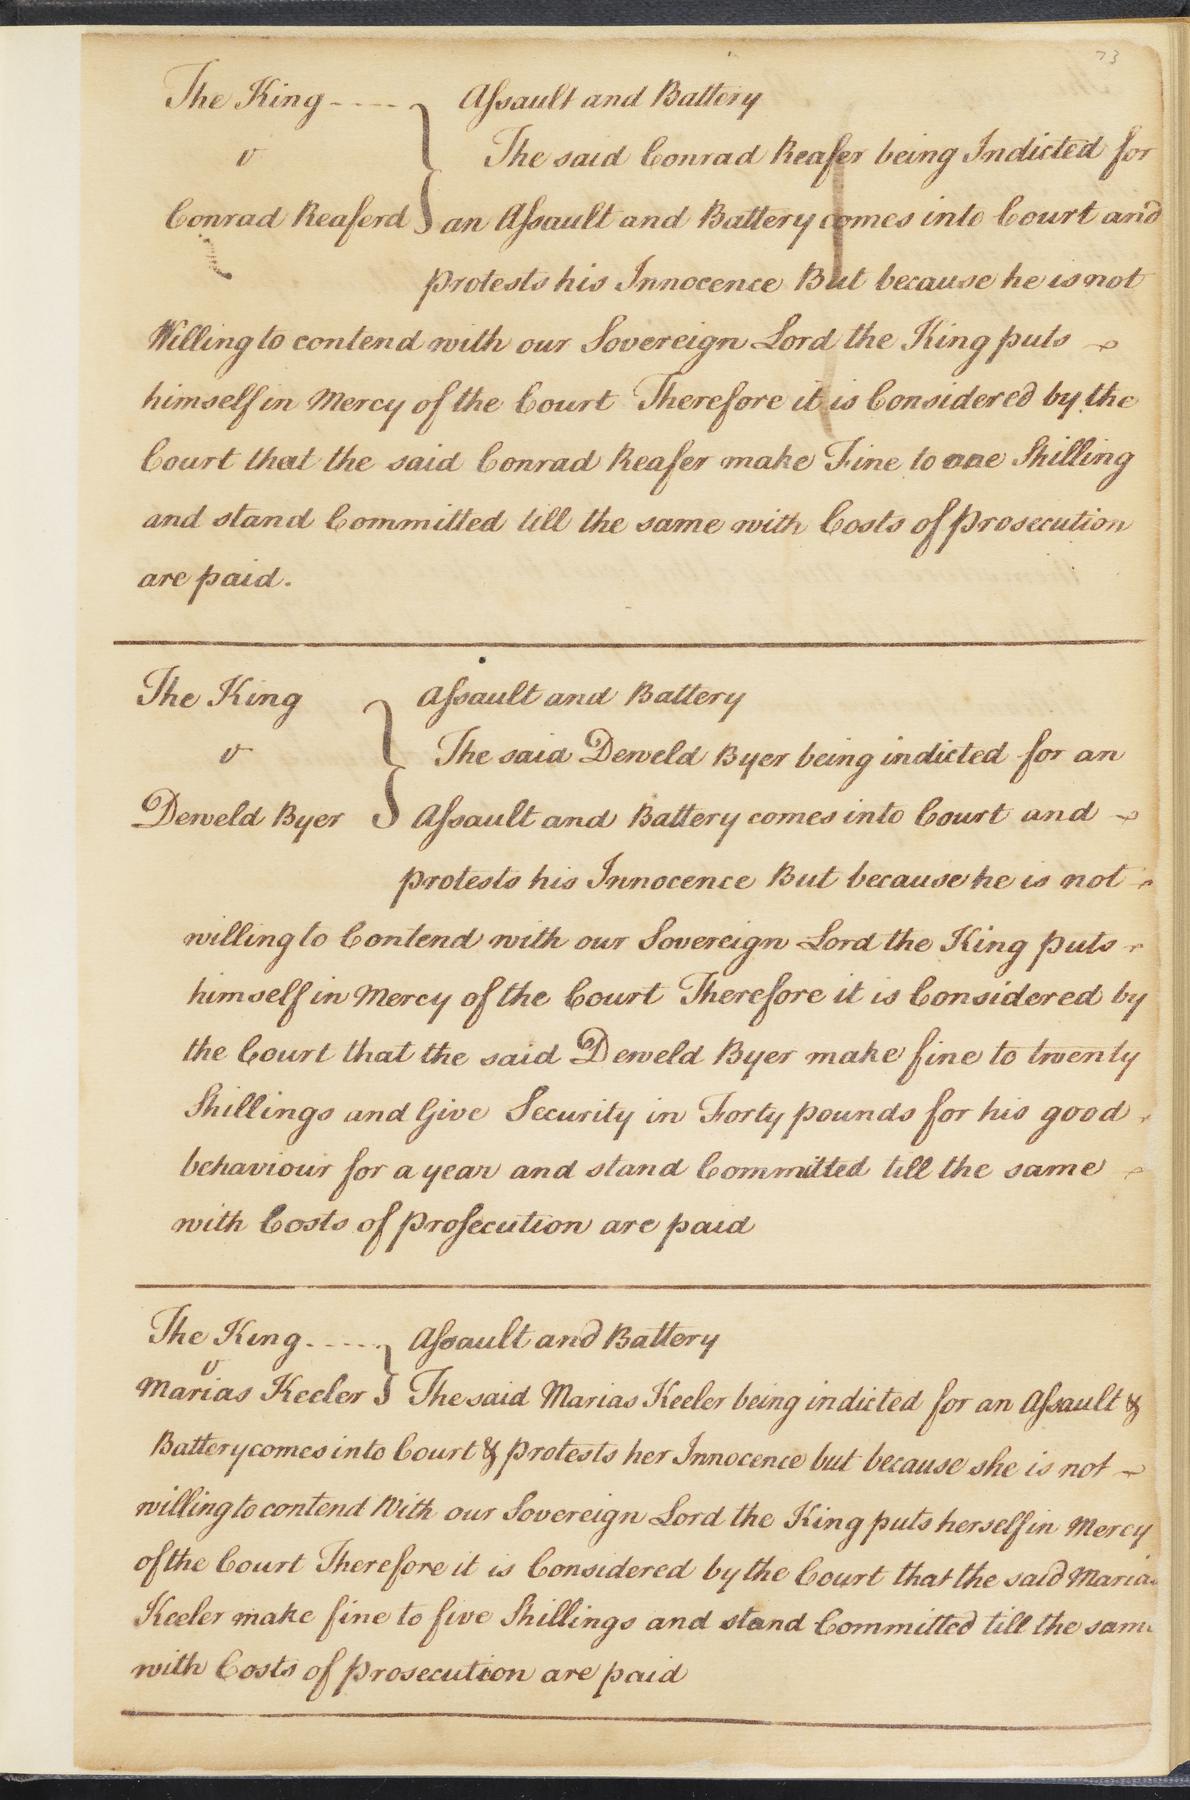 73
The King ---- Assault and Battery
v The said Conrad Reafer being Indicted for
Conrad Reaferd an Assault and Battery comes into Court and
protests his Innocence But because he is not
Willing to contend with our Sovereign Lord the King puts
himself in Mercy of the Court Therefore it is Considered by the
Court that the said Conrad Reafer make Fine to one Shilling
and stand Committed till the same with Costs of Prosecution
are paid.
The King Assault and Battery
v The said Deweld Byer being indicted for an
Deweld Byer Assault and Battery comes into Court and
protests his Innocence But because he is not
willing to Contend with our Sovereign Lord the King puts
himself in Mercy of the Court Therefore it is Considered by
the Court that the said Deweld Byer make fine to twenty
Shillings and Give Security in Forty pounds for his good
behaviour for a year and stand Committed till the same
with Costs of Prosecution are paid
The King ----- Assault and Battery
v
Marias Keeler The said Marias Keeler being indicted for an Assault &
Battery comes into Court & protests her Innocence but because she is not
willing to contend With our Sovereign Lord the King puts herself in Mercy
of the Court Therefore it is Considered by the Court that the said Marias
Keeler make fine to five Shillings and stand Committed till the same
with Costs of Prosecution are paid